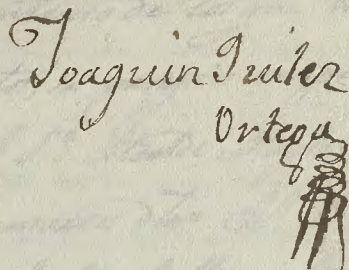 Joaquin Quilez
Ortega